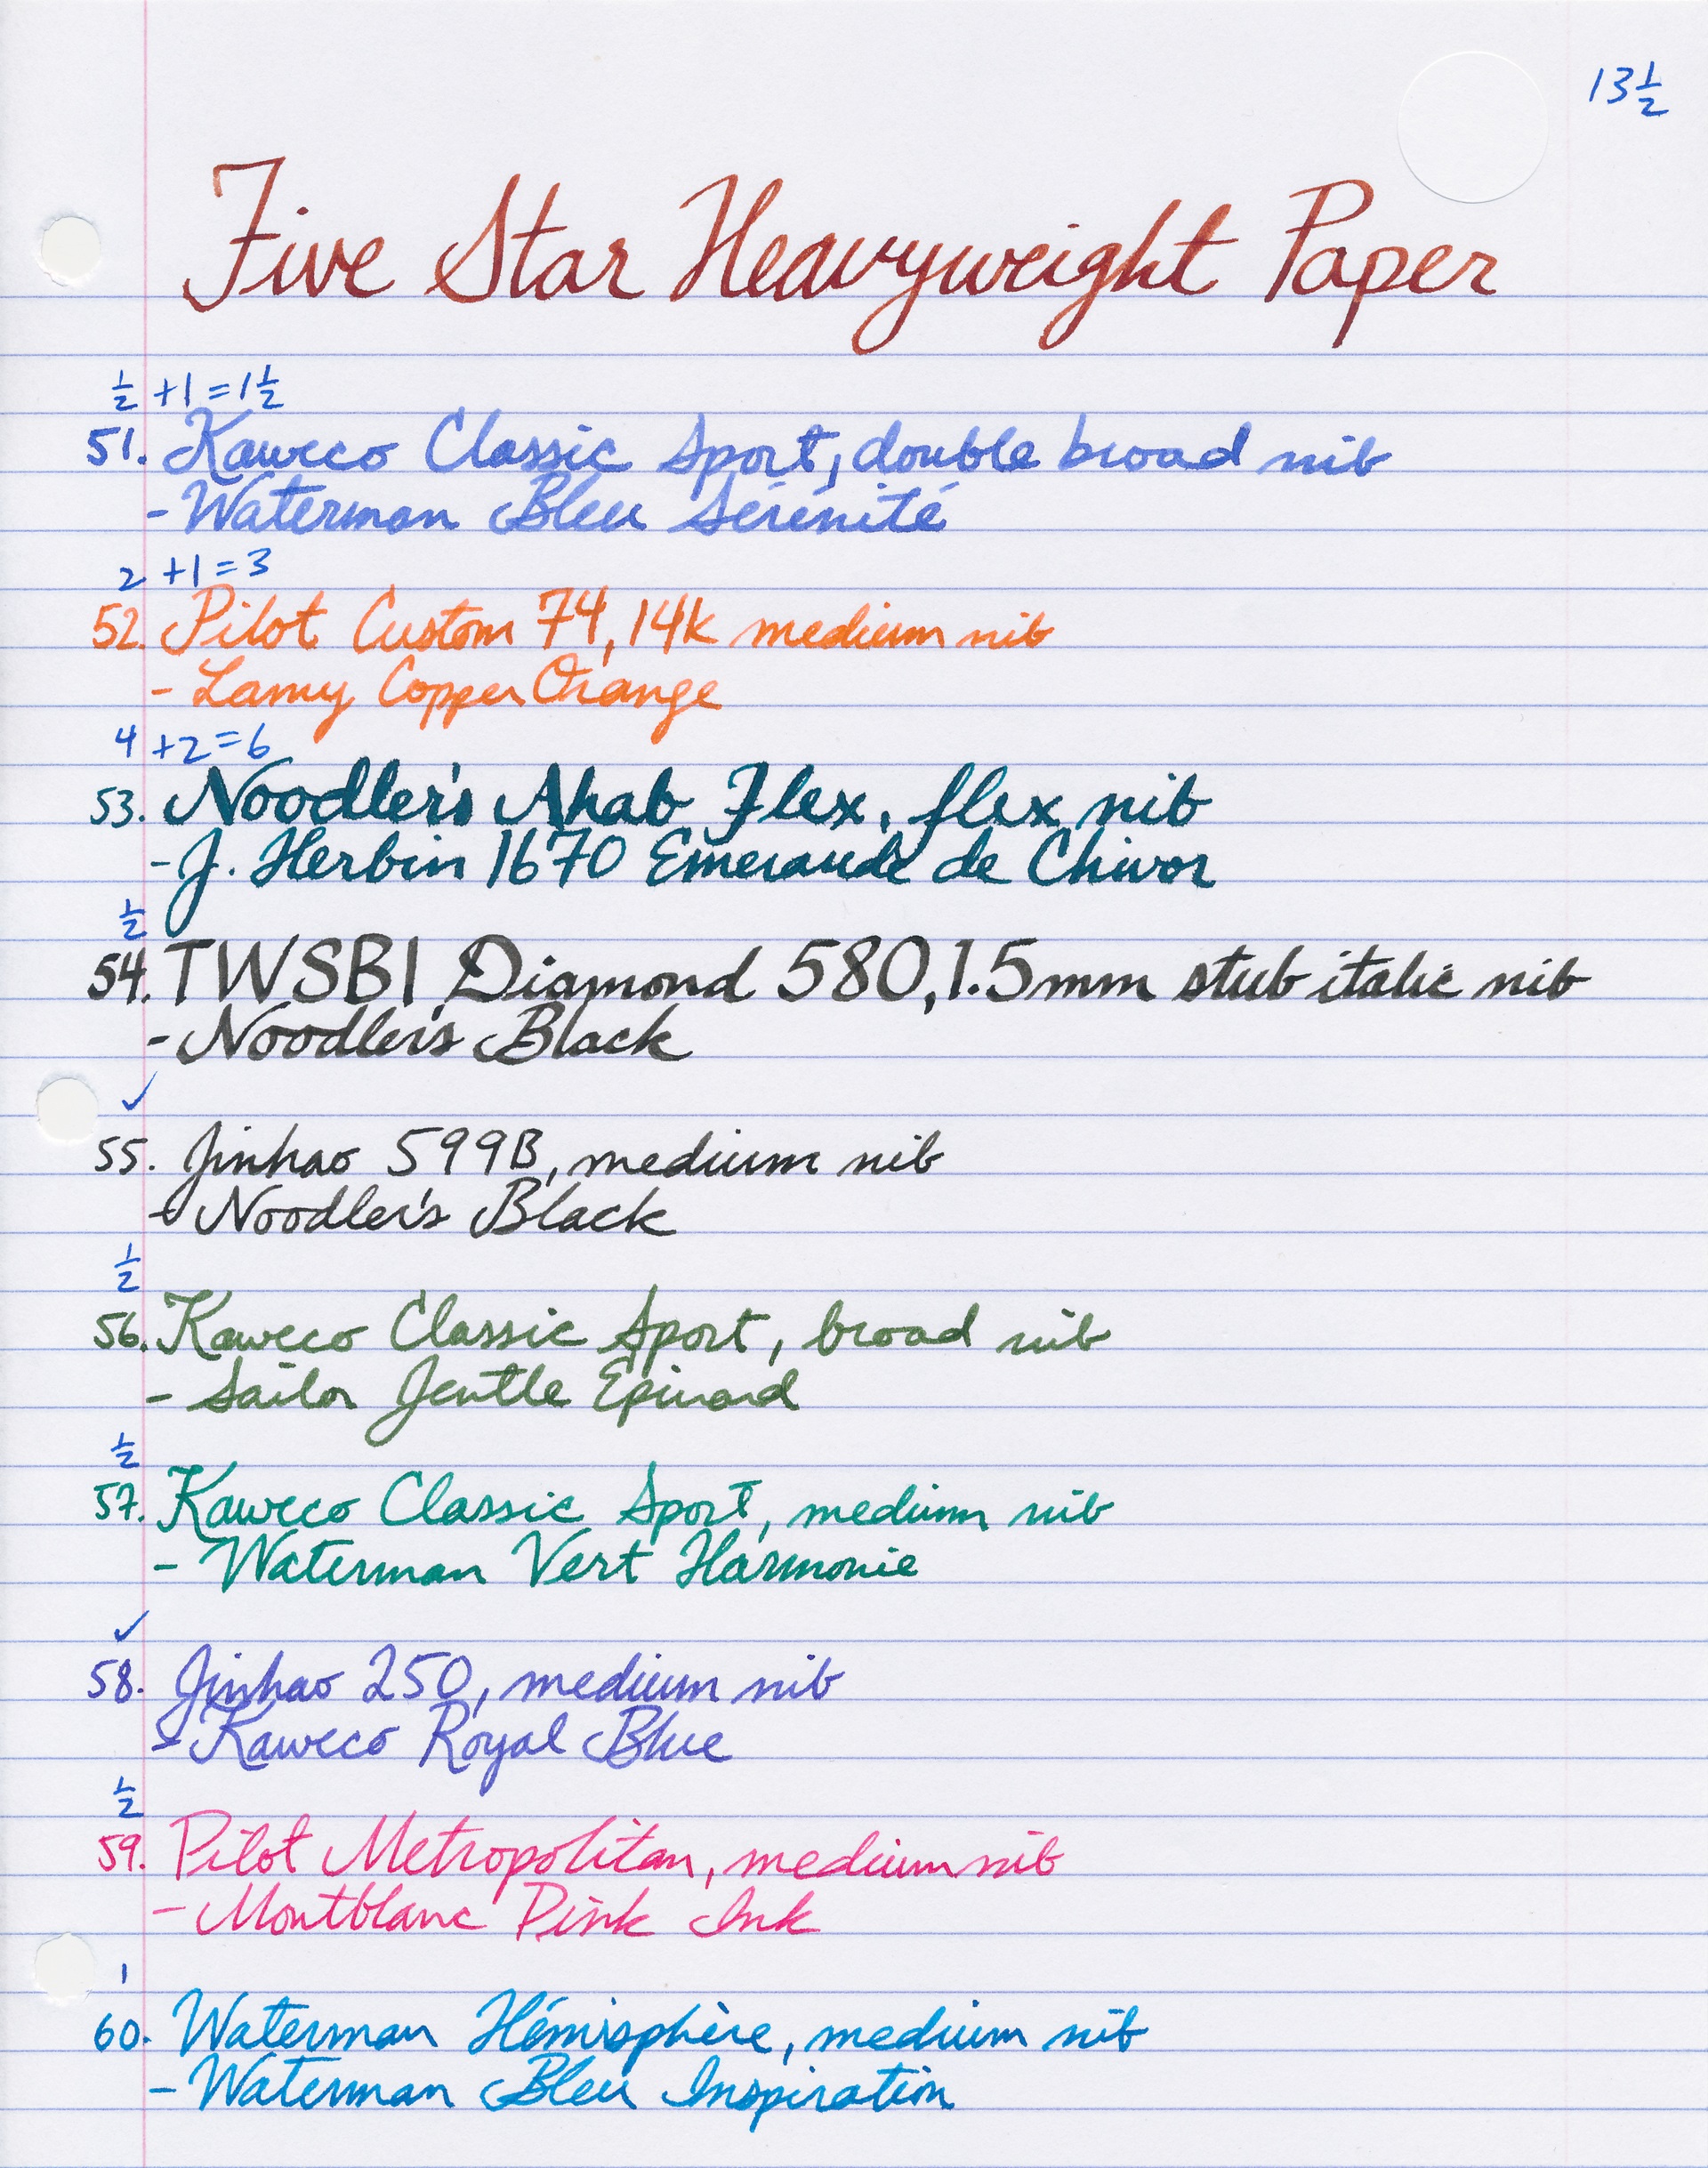 13 1/2
Five Star Heavyweight Paper
1/2 +1=1 1/2
51. Kaweco Classic Sport, double broad nib
- Waterman Bleu Sérénité
2 +1=3
52. Pilot Custom 74, 14k medium nib
- Lamy Copper Orange
4 +2=6
53. Noodler's Ahab Flex, flex nib
- J. Herbin 1670 Emeraude de Chivor
1/2
54. TWSBI Diamond 580, 1.5mm stub italic nib
- Noodler's Black
✓
55. Jinhao 599B, medium nib
- Noodler's Black
1/2
56. Kaweco Classic Sport, broad nib
- Sailor Jentle Epinard
1/2
57. Kaweco Classic Sport, medium nib
- Waterman Vert Harmonie
✓
58. Jinhao 250, medium nib
- Kaweco Royal Blue
1/2
59. Pilot Metropolitan, medium nib
- Montblanc Pink Ink
1
60. Waterman Hémisphère, medium nib
- Waterman Bleu Inspiration